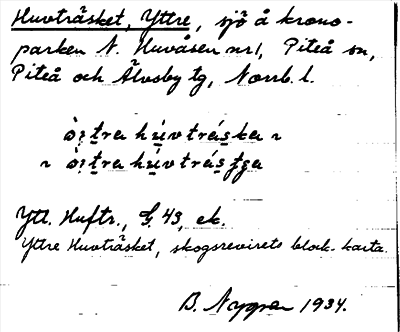 Huvträsket, Yttre, sjö å krono-
parken N. Huvåsen nr 1, Piteå sn,
Piteå och Älvsby tg, Norrb. l.
tra húv tráska ~
~ tra húv trás
Ytt. Huftr., G. 43, ek.
Yttre Huvträsket, skogsrevirets block-karta.
B. Nygren 1934.